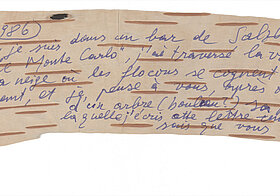 986)
je suis dans un bar de Salzb
e Monte Carlo", j'ai traversé la v
la neige où les flocons se cognent
ent, et je pense à vous, après
d'un arbre (bouleau) sa
laquelle j'écris cette lettre
suis que vous